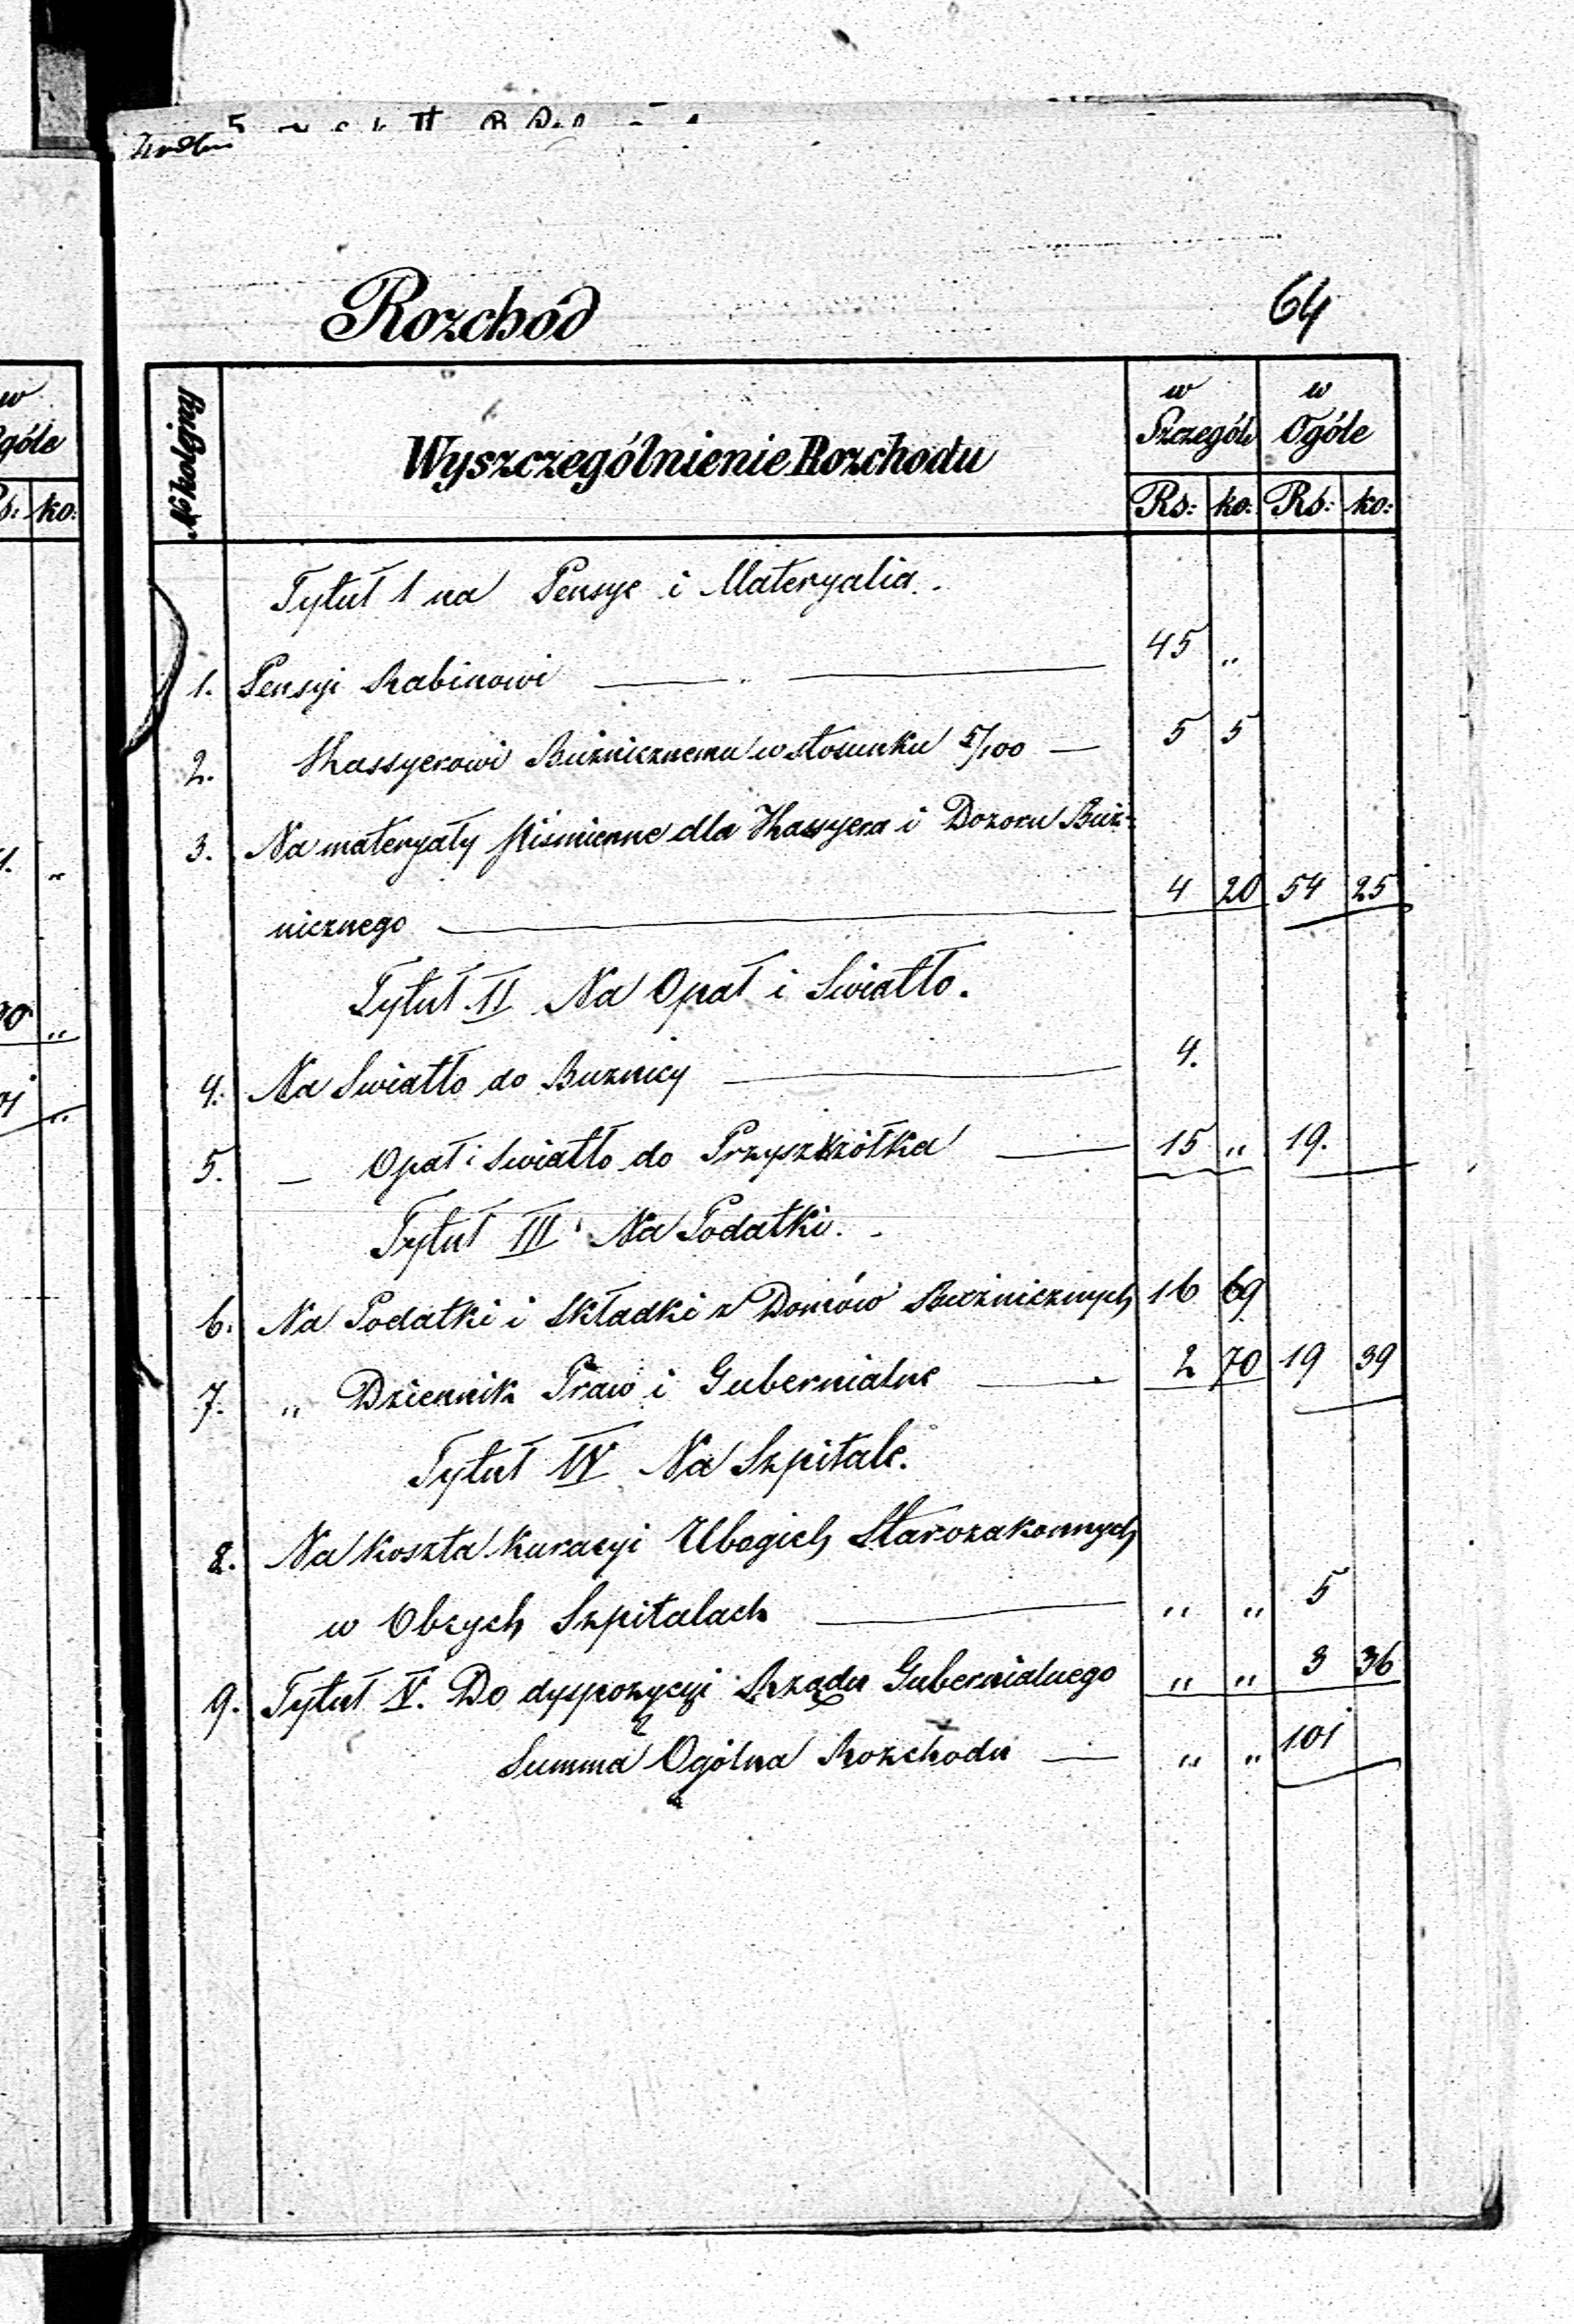 Rozchód
64
№ kolejny
Wyszczególnienie Rozchodu
w Szczególe
w Ogóle
Rs: ko: Rs: ko:
Tytuł I na Pensye i Materyalia.
1. Pensyi Rabinowi 45 "
2. Kassyerowi Bużnicznemu w stosunku 5/100 5 5
3. Na materyały piśmienne dla Kassyera i Dozoru Buż-
nicznego 4 20 54 25
Tytuł II Na Opał i Swiatło.
4. Na Swiatło do Buznicy 4.
5. — Opał i Swiatło do Przyszkółka 15 " 19.
Tytuł III Na Podatki.
6. Na Podatki i Składki z Domów Bużnicznych 16 69
7. " Dziennik Praw i Gubernialne 2 70 19 39
Tytuł IV Na Szpitale.
8. Na koszta kuracyi Ubogich Starozakonnych
w Obcych Szpitalach " " 5
9. Tytuł V. Do dyspozycyi Rządu Gubernialnego " " 3 36
Summa Ogólna Rozchodu " " 101
w
góle
ko: